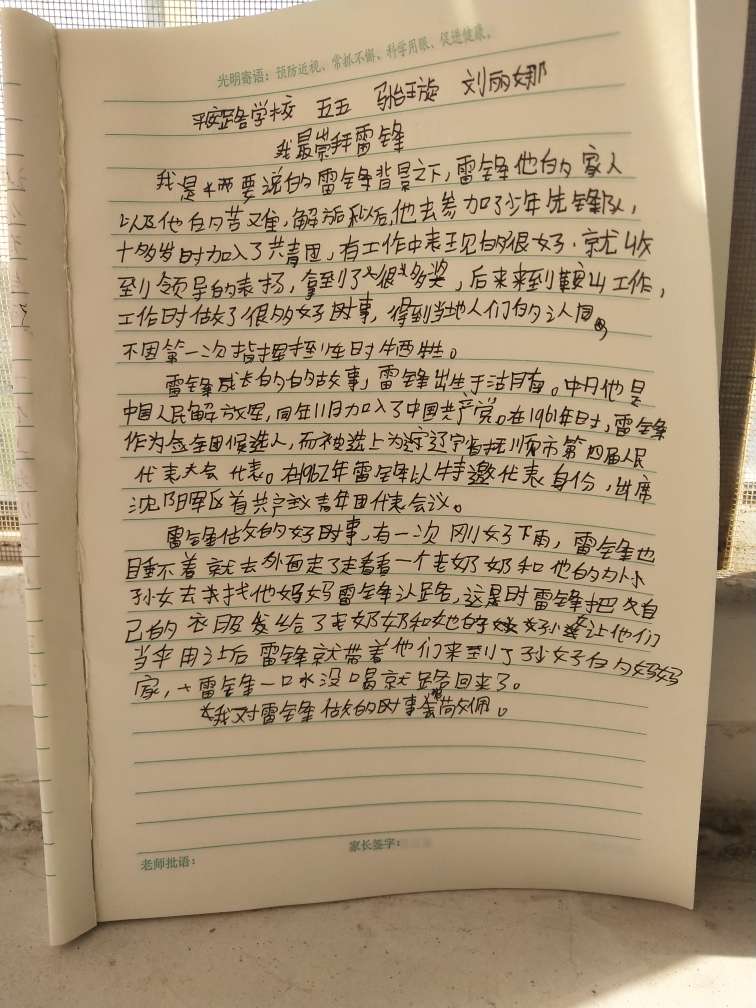 光明寄语：预防近视、常抓不懈、科学用眼、促进健康。
平安路学校 五五 刘丽娜
我最崇拜雷锋
我是要说的雷锋背景之下，雷锋他的家人
以及他的苦难，解放以后，他去参加了少年先锋队，
十多岁时加入了共青团，有工作中表现的很好，就收
到领导的表扬，拿到了很多奖，后来来到鞍山工作，
工作时做了很多好时事，得到当地人们的认同。
不因第一次指挥时牺牲。
雷锋成长的的故事，雷锋出生于。中月他是
中国人民解放军，同年11月加入了中国共产党。在1961年时，雷锋
作为全团候选人，而被选上为辽宁省抚顺市第四届人民
代表大会代表。在1962年雷锋以特邀代表身份，出席
沈阳军区首共产主义青年团代表会议。
雷锋做的好时事，有一次刚好下雨，雷锋也
睡不着就去外面走了走看看一个老奶奶和他的小
孙女去找他妈妈雷锋认路，这是时雷锋把自
己的衣服发给了老奶奶和她的孙让他们
当伞用之后雷锋就带着他们来到了孙女的妈妈
家，雷锋一口水没喝就路回来了。
我对雷锋做的时事很敬佩。
老师批语：
家长签字：